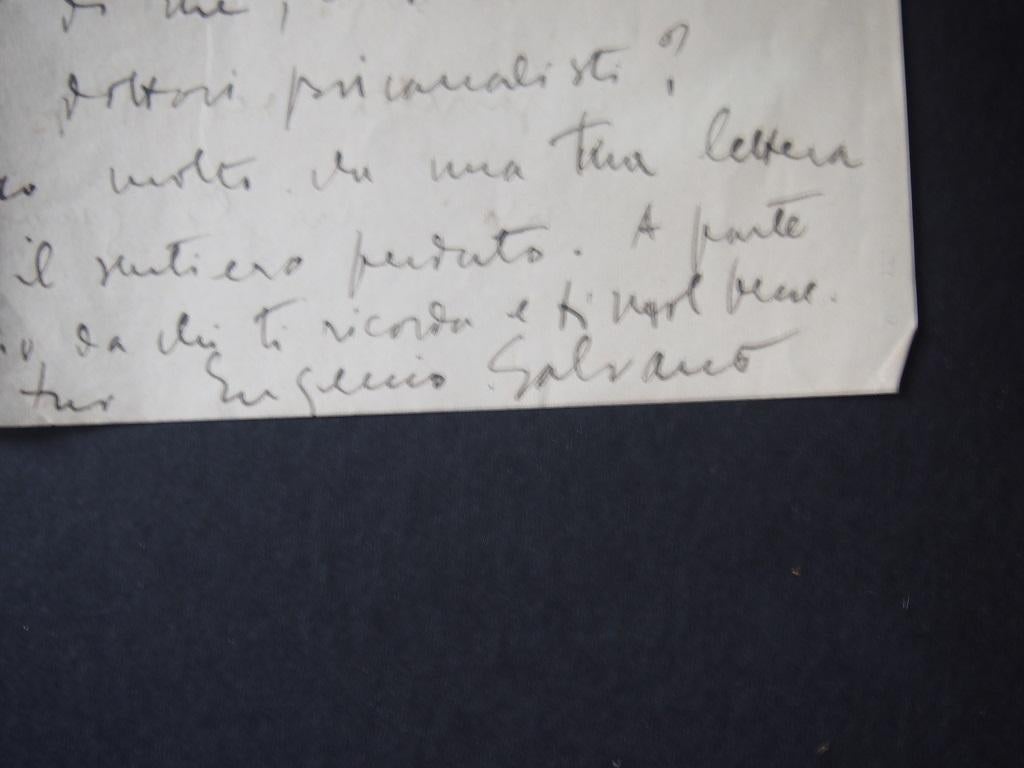 di me,
dottori psicanalisti?
molto da una tua lettera
il sentiero perduto. A parte
da chi ti ricorda e ti vuol bene.
tuo Eugenio Galvano